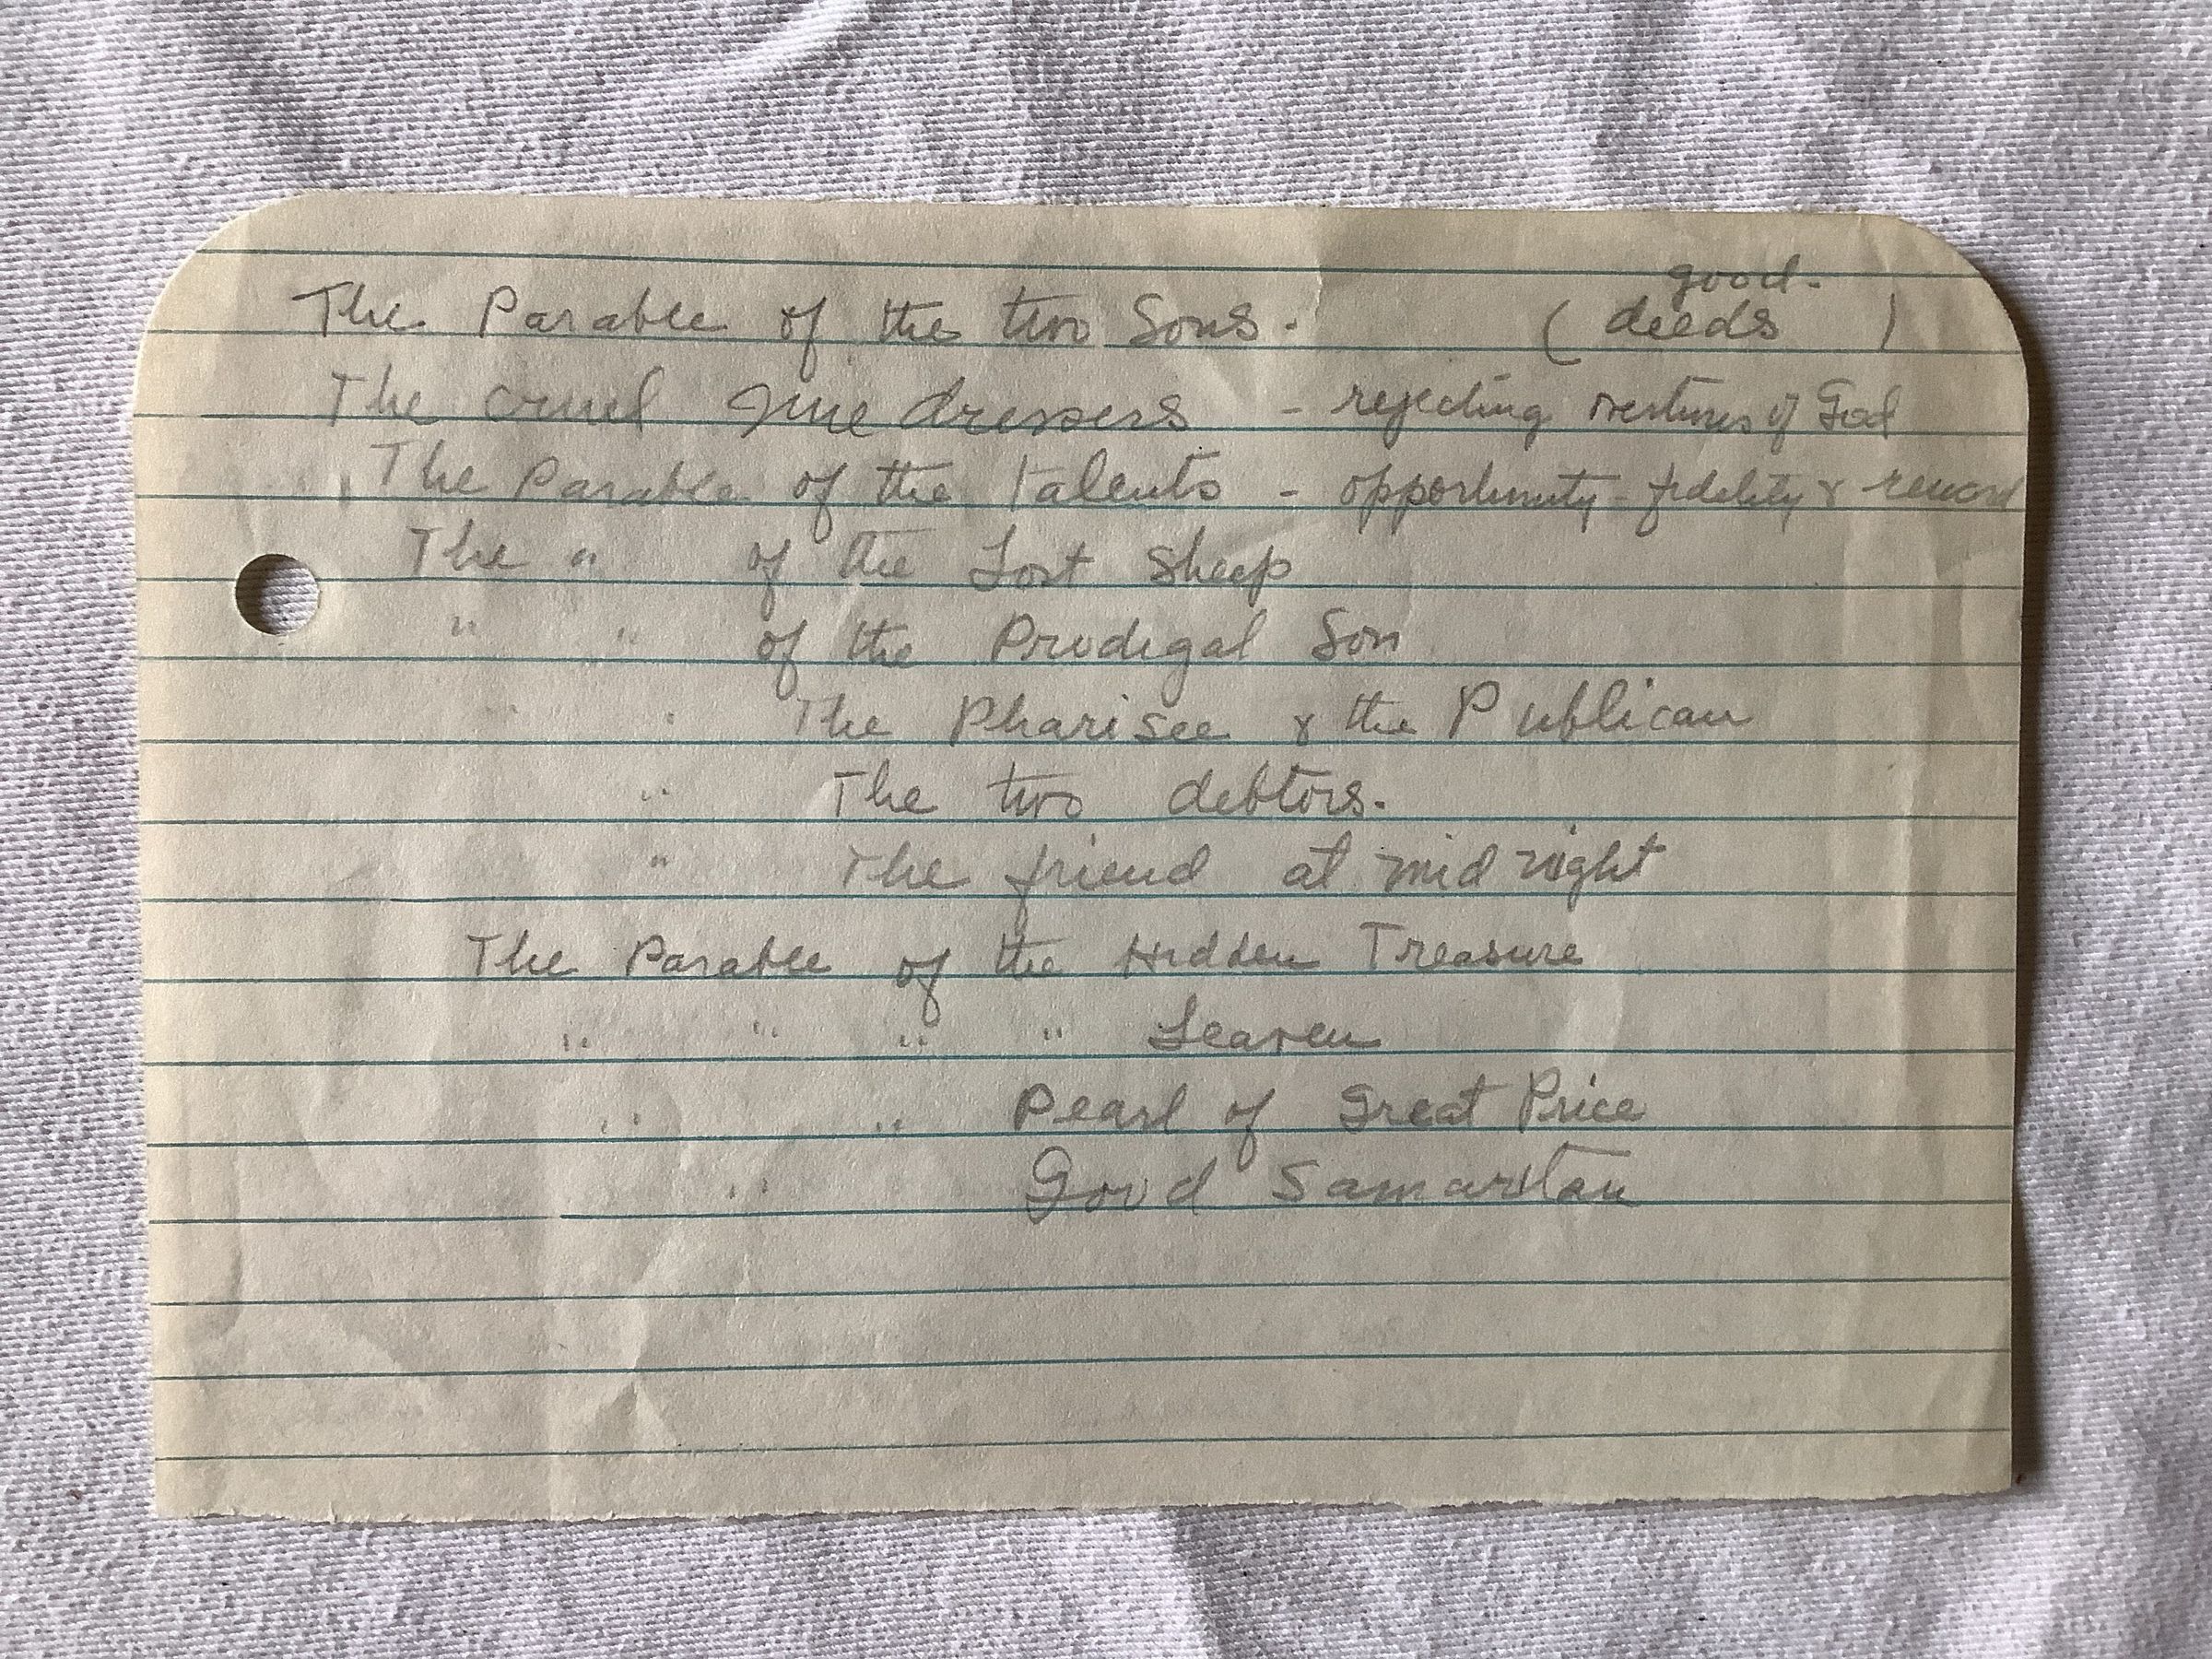 good.
The Parable of the two Sons. ( deeds )
The cruel Vine dressers - rejecting overtures of God
The Parable of the Talents - opportunity - fidelity & reward
The " of the Lost Sheep
" " of the Prodigal Son
" " The Pharisee & the Publican
" The two debtors.
" The friend at mid night
The Parable of the Hidden Treasure
" " " " Leaven
" " Pearl of Great Price
" Good Samaritan